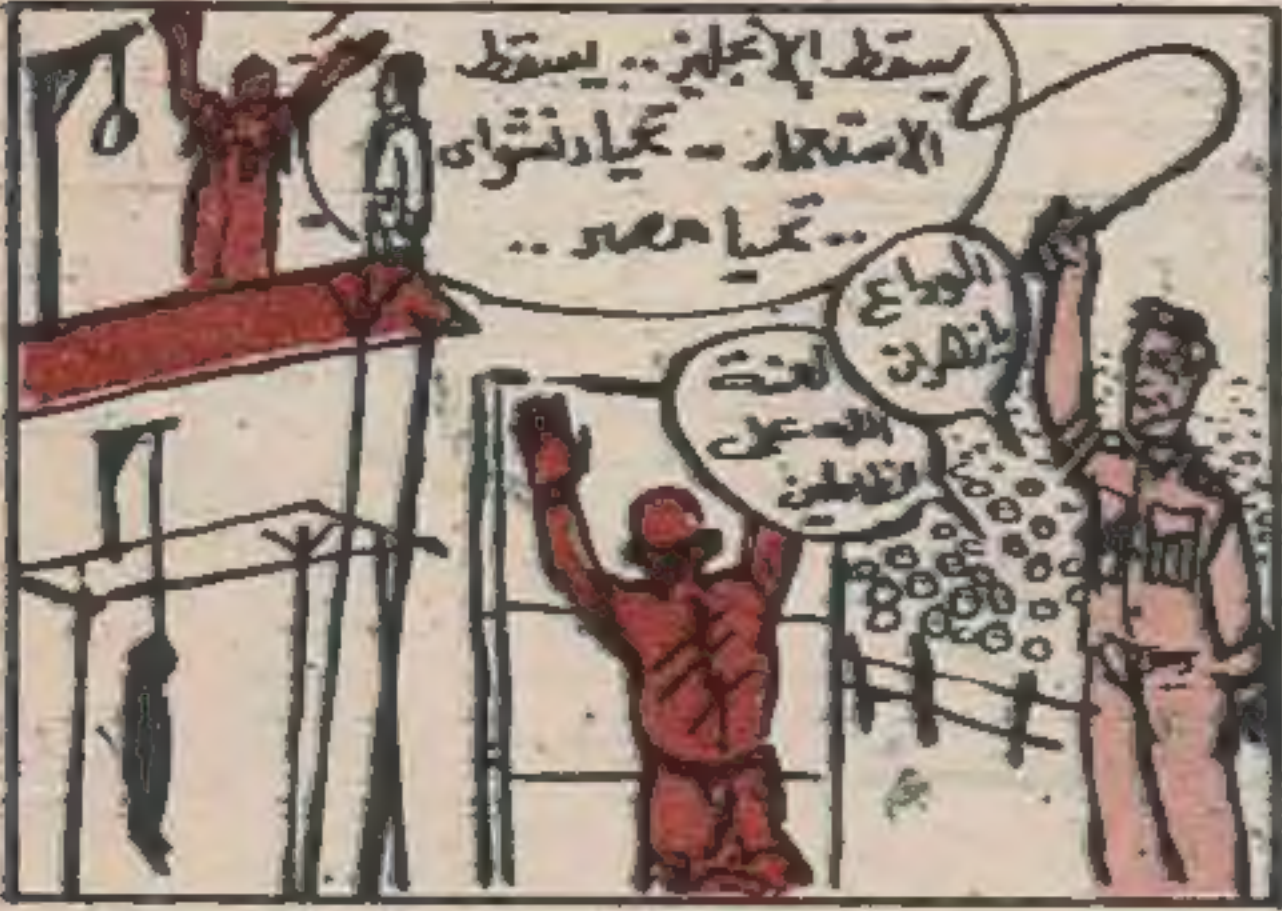 يسقط الإنجليز .. يسقط
الاستعمار .. تحيا دنشواى
.. تحيا مصر ..
الوداع
يا زهران
لعنة
الله على
الظالمين